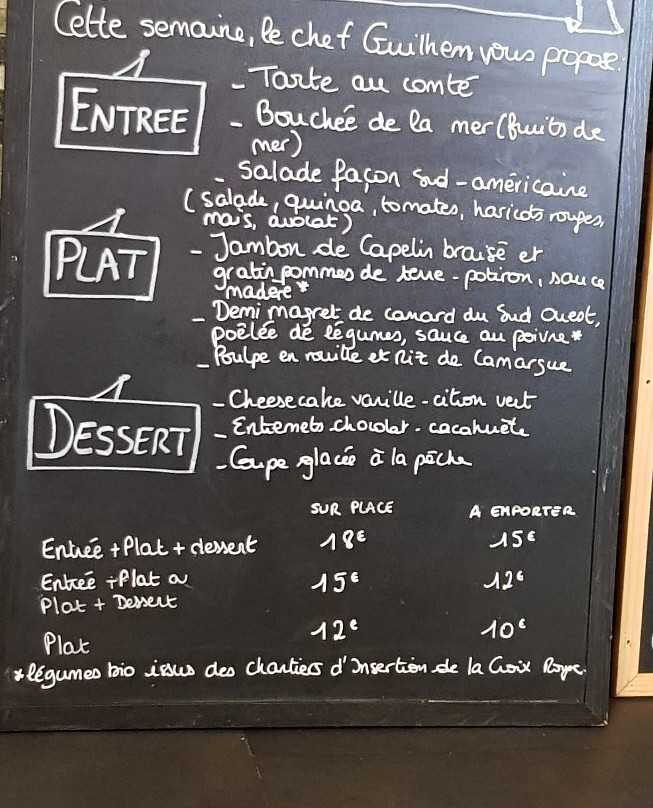 Cette semaine, le chef Guilhem vous propose:
ENTREE
- Tarte au comté
- Bouchée de la mer (fruits de
mer)
- Salade façon Sud-américaine
(salade, quinoa, tomates, haricots rouges,
maïs, avocat)
PLAT
- Jambon de Capelin braisé et
gratin pommes de terre - potiron, sauce
madère*
- Demi magret de canard du Sud Ouest,
poêlée de légumes, sauce au poivre*
- Poulpe en rouille et Riz de Camargue
DESSERT
- Cheesecake vanille - citron vert
- Entremets chocolat - cacahuète
- Coupe glacée à la pêche
SUR PLACE A EMPORTER
Entrée + Plat + dessert 18€ 15€
Entrée + Plat ou 15€ 12€
Plat + Dessert
Plat 12€ 10€
*légumes bio issus des chantiers d'Insertion de la Croix Rouge.